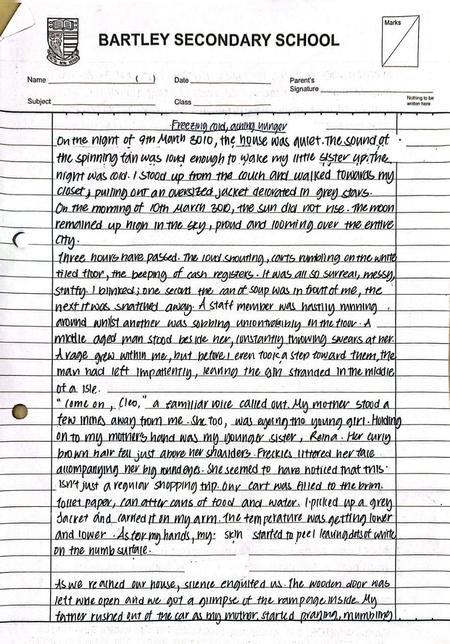 BARTLEY SECONDARY SCHOOL
Marks
Name ( ) Date Parent's
Signature
Subject Class
Nothing to be
written here
Freezing cold, aching hunger
On the night of 9th March 3010, the house was quiet. The sound of
the spinning fan was loud enough to wake my little sister up. The
night was cold. I stood up from the couch and walked towards my
closet, pulling out an oversized jacket decorated in grey stars.
On the morning of 10th March 3010, the sun did not rise. The moon
remained up high in the sky, proud and looming over the entire
city.
Three hours have passed. The loud shouting, carts rumbling on the white
tiled floor, the beeping of cash registers. It was all so surreal, messy,
stuffy. I blinked; one second the can of soup was in front of me, the
next it was snatched away. A staff member was hastily running
around whilst another was sobbing uncontrollably in the floor. A
middle aged man stood beside her, constantly throwing swears at her.
A rage grew within me, but before I even took a step toward them, the
man had left impatiently, leaving the girl stranded in the middle
of a isle.
"Come on, Cleo," a familiar voice called out. My mother stood a
few inches away from me. She too, was eyeing the young girl. Holding
on to my mothers hand was my younger sister, Reina. Her curly
brown hair fell just above her shoulders. Freckles littered her face
accompanying her big round eyes. She seemed to have noticed that this
isn't just a regular shopping trip. Our cart was filled to the brim.
Toilet paper, can after cans of food and water. I picked up a grey
jacket and carried it on my arm. The temperature was getting lower
and lower. As for my hands, my skin started to peel leaving dots of white
on the numb surface.
As we reached our house, silence engulfed us. The wooden door was
left wide open and we got a glimpse of the rampage inside. My
father rushed out of the car as my mother started praying, mumbling